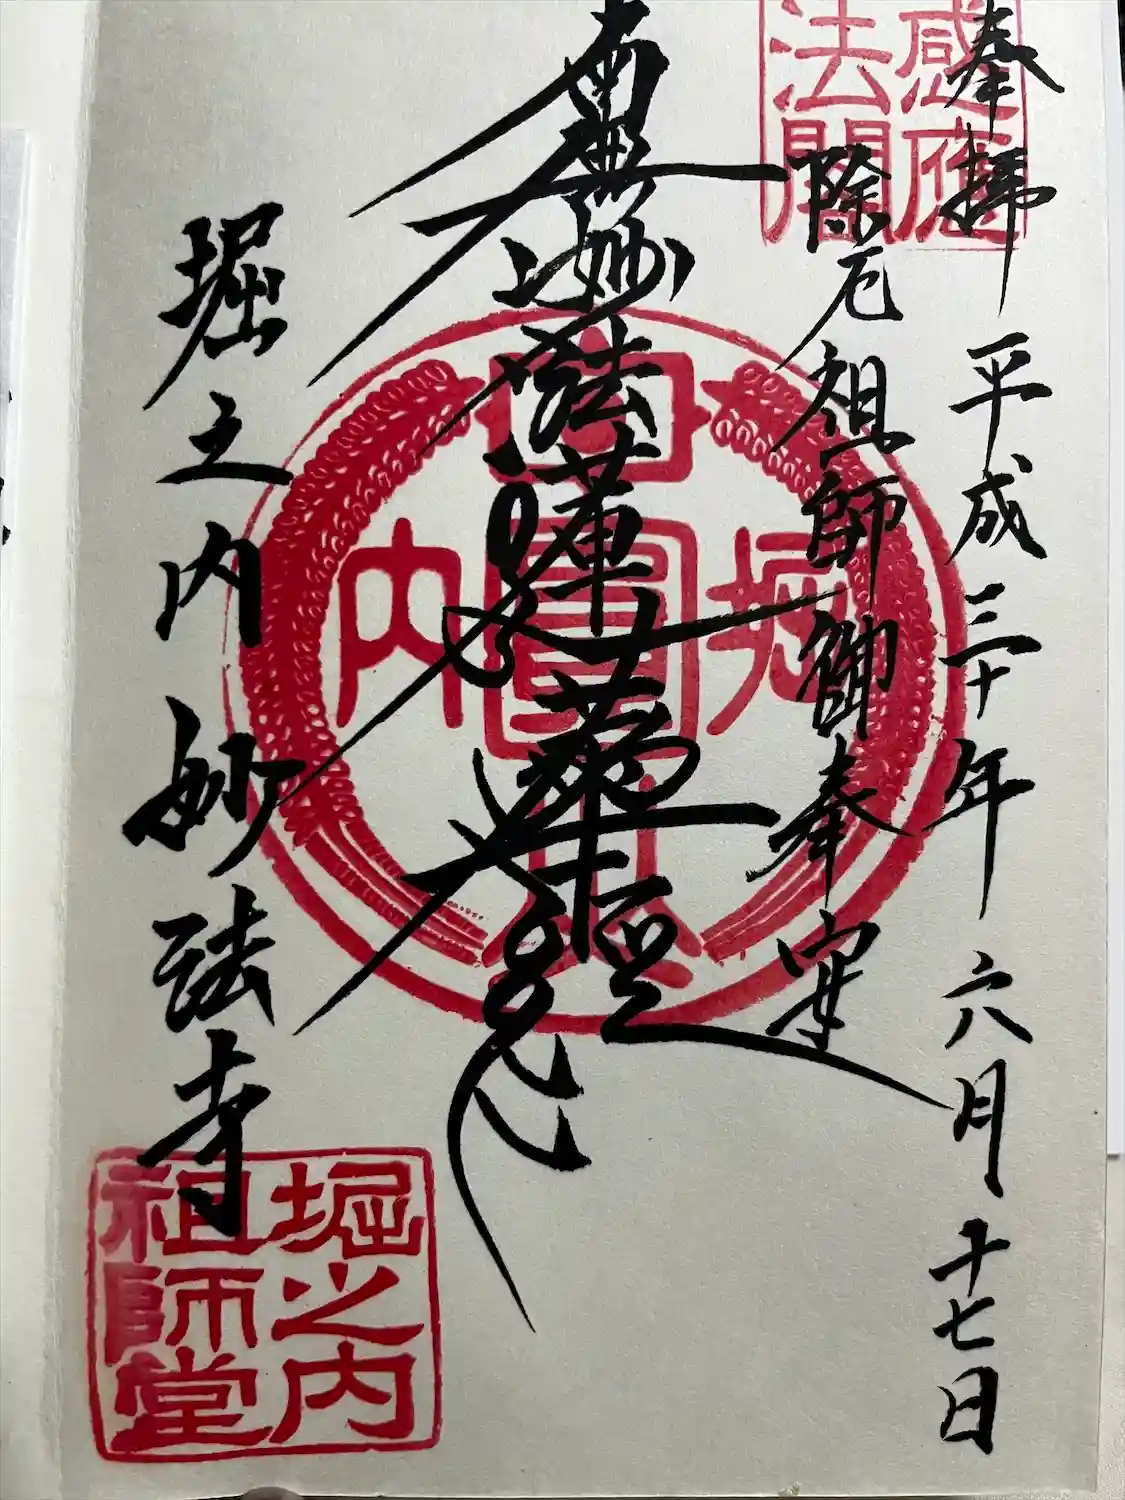 奉拝 平成三十年六月十七日
感應
法閣
除厄祖師御奉安
南無妙法蓮華経
堀之内 妙法寺
堀
内
堀之内
祖師堂